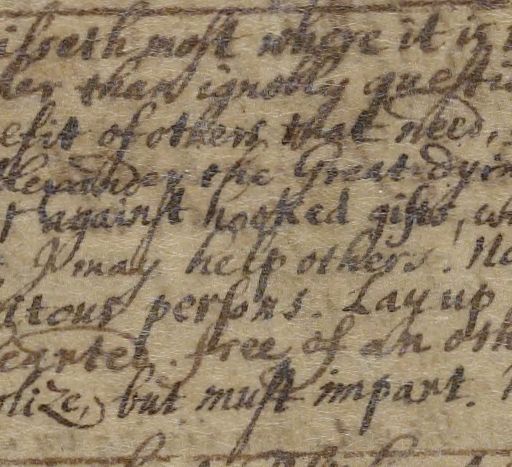 isseth most where it is
then ignobly questi
efit of others that need,
Alexander the Great dyin
against hooked gifts, wh
I may help others. No
itous persons. Lay up
earted. free of an oth
olize, but must impart.